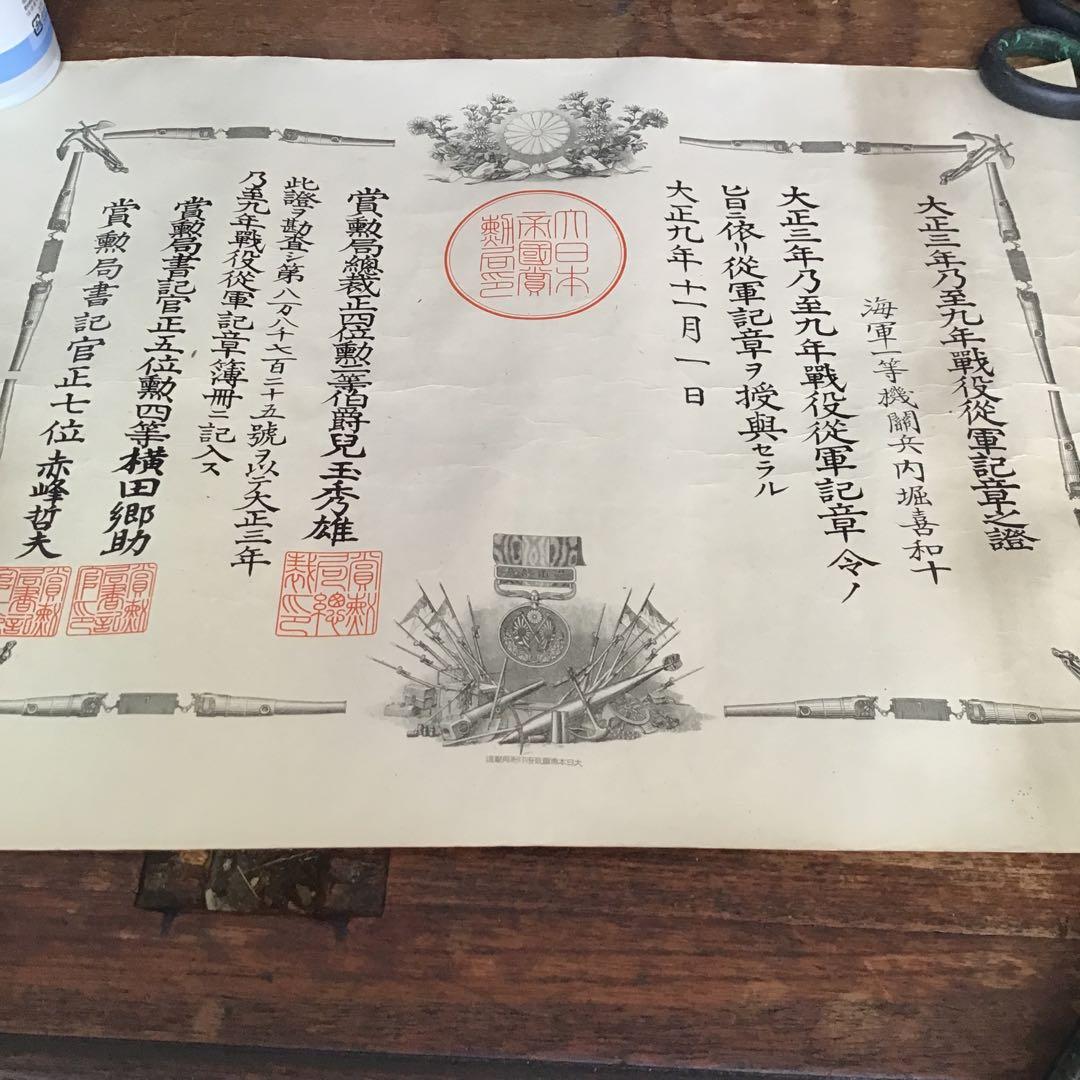 大正三年乃至九年戰役從軍記章之證
海軍一等機關兵内堀喜和十
大正三年乃至九年戰役從軍記章令ノ
旨ニ依リ從軍記章ヲ授與セラル
大正九年十一月一日
大日本
帝國賞
勲局印
賞勲局總裁正四位勲二等伯爵兒玉秀雄
此證ヲ勘査シ第八万八千七百二十五號ヲ以テ大正三年
乃至九年戰役從軍記章簿冊ニ記入ス
賞勲局書記官正五位勲四等横田郷助
賞勲局書記官正七位赤峰哲夫
賞勲
局總
裁印
賞勲
局書記
官印
大日本帝國政府印刷局製造